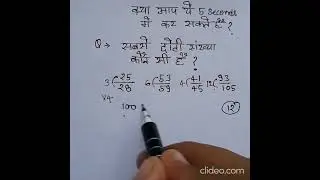 क्या आप ये 5 Seconds
में कर सकते हैं?
Q→ सबसे छोटी संख्या
कौन सी है?
3(25/28 6(53/59 4(41/45 12(93/105
100
12
clideo.com